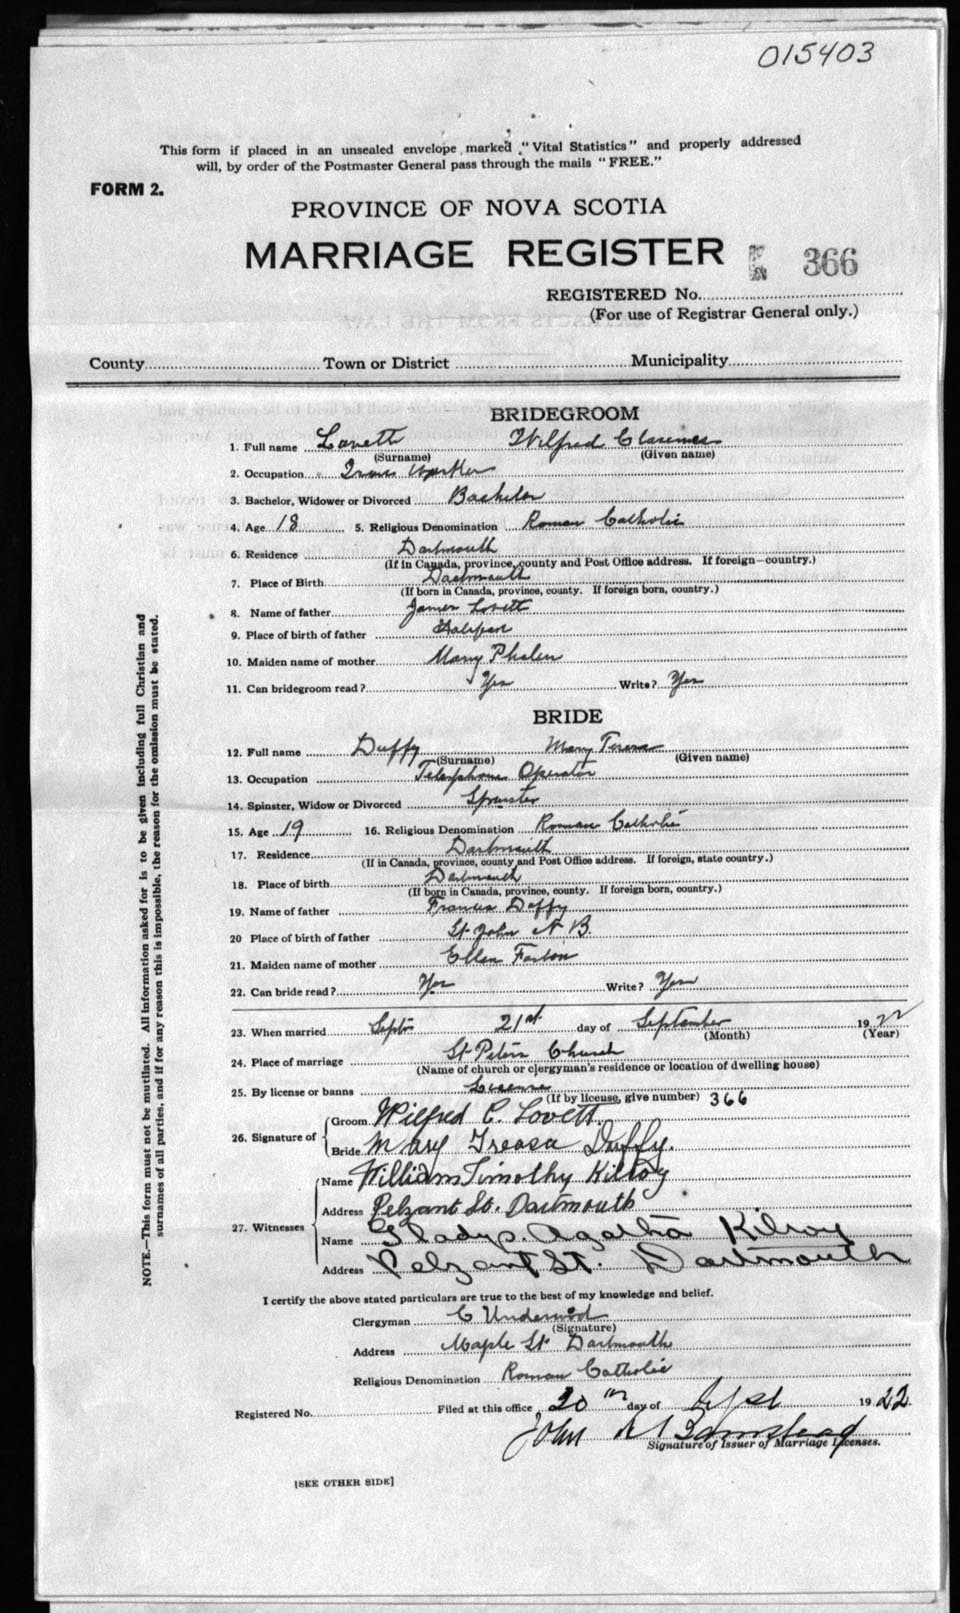 015403
This form if placed in an unsealed envelope marked "Vital Statistics" and properly addressed
will, by order of the Postmaster General pass through the mails "FREE."
FORM 2.
PROVINCE OF NOVA SCOTIA
MARRIAGE REGISTER 366
REGISTERED No.
(For use of Registrar General only.)
County Town or District Municipality
BRIDEGROOM
1. Full name Lovett Wilfred Clarence
(Surname) (Given name)
2. Occupation Iron Worker
3. Bachelor, Widower or Divorced Bachelor
4. Age 18 5. Religious Denomination Roman Catholic
6. Residence Dartmouth
(If in Canada, province, county and Post Office address. If foreign—country.)
7. Place of Birth Dartmouth
(If born in Canada, province, county. If foreign born, country.)
8. Name of father James Lovett
9. Place of birth of father Halifax
10. Maiden name of mother Mary Phelan
11. Can bridegroom read? Yes Write? Yes
BRIDE
12. Full name Duffy Mary Teresa
(Surname) (Given name)
13. Occupation Telephone Operator
14. Spinster, Widow or Divorced Spinster
15. Age 19 16. Religious Denomination Roman Catholic
17. Residence Dartmouth
(If in Canada, province, county and Post Office address. If foreign, state country.)
18. Place of birth Dartmouth
(If born in Canada, province, county. If foreign born, country.)
19. Name of father Francis Duffy
20 Place of birth of father St John N B.
21. Maiden name of mother Ellen
22. Can bride read? Yes Write? Yes
23. When married Septr 21st day of September 1922
(Month) (Year)
24. Place of marriage St Peters Church
(Name of church or clergyman's residence or location of dwelling house)
25. By license or banns License
(If by license, give number) 366
26. Signature of Groom Wilfred C. Lovett
Bride Mary Treasa Duffy.
27. Witnesses Name William Timothy Kilroy
Address Pelzant St. Dartmouth
Name Gladys. Agatha Kilroy
Address Pelzant St. Dartmouth
I certify the above stated particulars are true to the best of my knowledge and belief.
Clergyman C Underwood
(Signature)
Address Maple St Dartmouth
Religious Denomination Roman Catholic
Registered No. Filed at this office 20th day of Sept 1922.
John
Signature of Issuer of Marriage Licenses.
[SEE OTHER SIDE]
NOTE.—This form must not be mutilated. All information asked for is to be given including full Christian and
surnames of all parties, and if for any reason this is impossible, the reason for the omission must be stated.